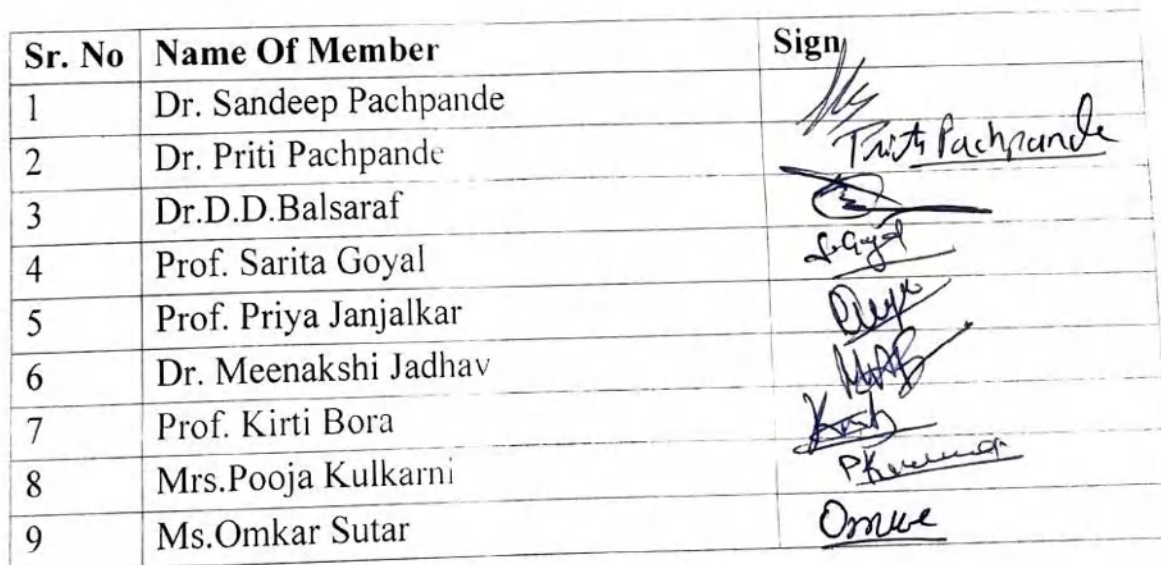 Sr. No Name Of Member Sign
1 Dr. Sandeep Pachpande
2 Dr. Priti Pachpande Priti Pachpande
3 Dr.D.D.Balsaraf
4 Prof. Sarita Goyal S.Goyal
5 Prof. Priya Janjalkar
6 Dr. Meenakshi Jadhav
7 Prof. Kirti Bora
8 Mrs.Pooja Kulkarni
9 Ms.Omkar Sutar